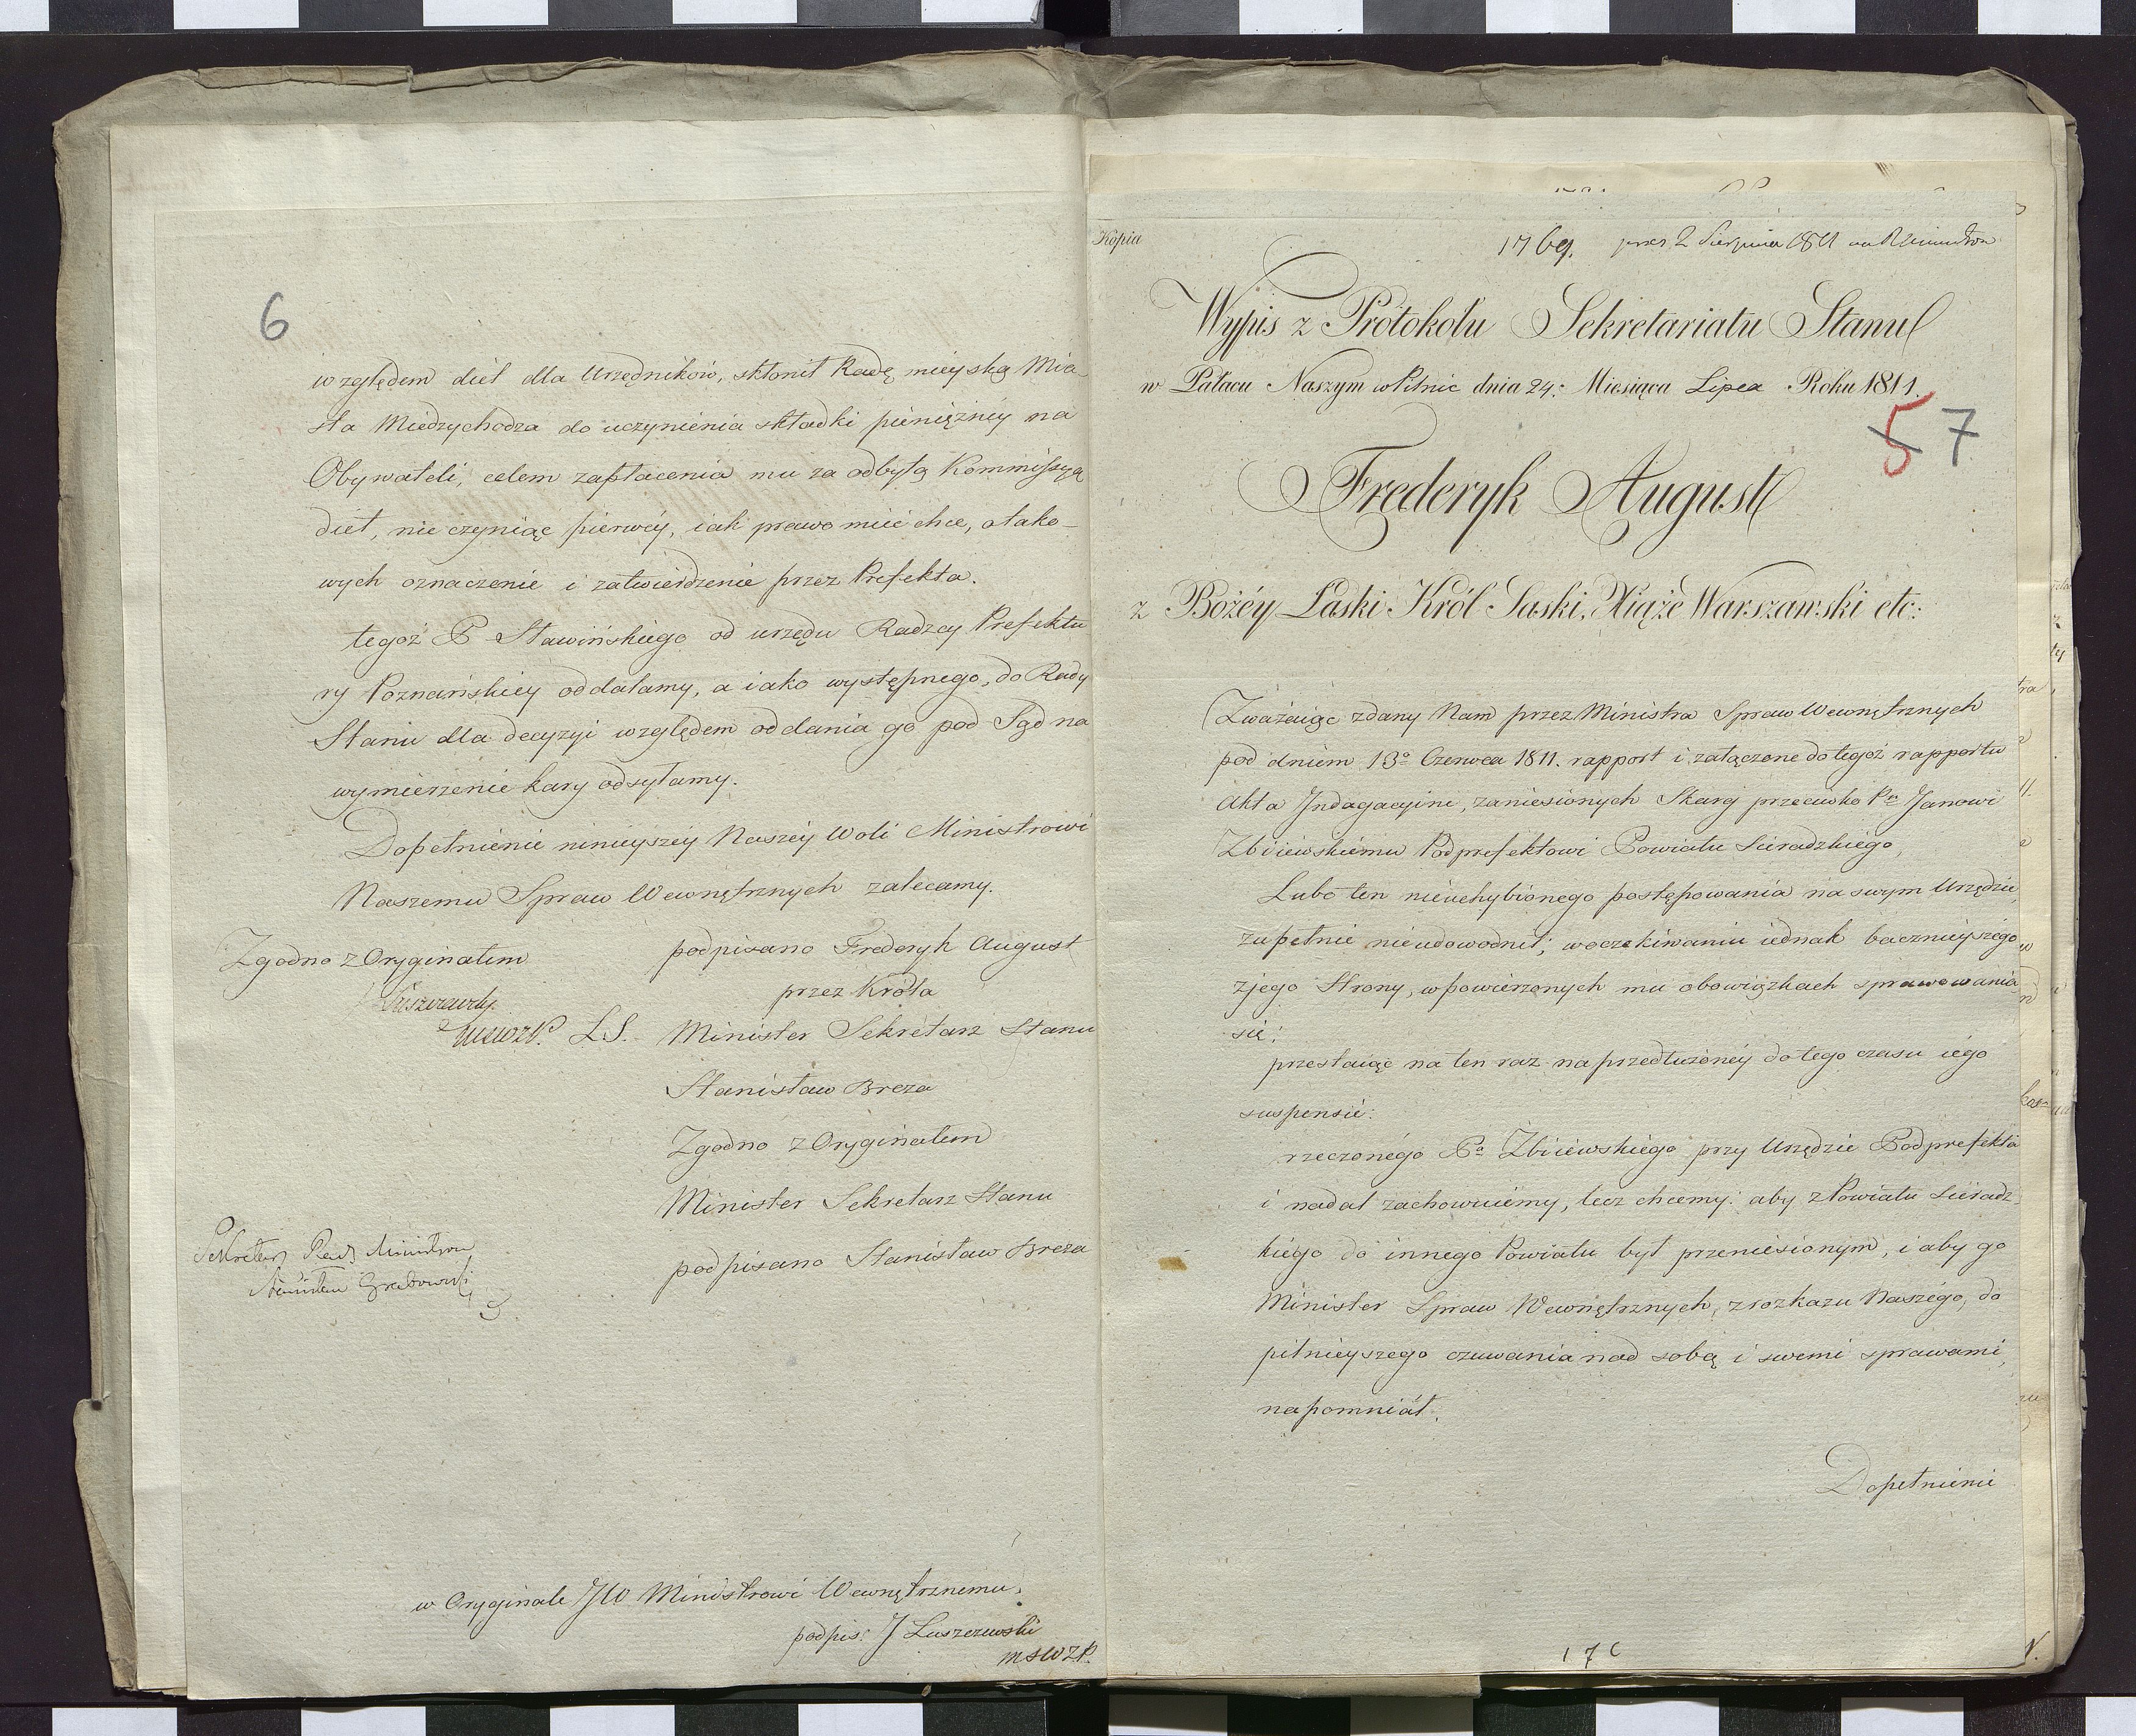 6
względem diet dla Urzędników, skłonił Radę mieyską Mia-
sta Miedzychodza do uczynienia składki pieniężnéy na
Obywateli, celem zapłacenia mu za odbytą Kommissyą
diet, nie czyniąc pierwéy, iak prawo mieć chce, o tako-
wych oznaczenie i zatwierdzenie przez Prefekta.
tegoż P Sławińskiego od urzędu Radzcy Prefektu
ry Poznańskiey oddalamy, a iako występnego, do Rady
Stanu dla decyzyi względem oddania go pod Sąd na
wymierzenie kary odsyłamy.
Dopełnienie ninieyszéy Naszéy Woli Ministrowi
Naszemu Spraw Wewnętrznych zalecamy.
Zgodno z Oryginałem podpisano Frederyk August
przez Króla
L.S. Minister Sekretarz Stanu
Stanisław Breza
Zgodno z Oryginałem
Minister Sekretarz Stanu
podpisano Stanisław Breza
Sekretarz Rady Ministrów
Stanisław Grabowski
w Oryginale JW Ministrowi Wewnętrznemu.
podpis: J Łuszczewski
MSWZP.
Kopia
1769. prez 2 Sierpnia 1811
Wypis z Protokołu Sekretariatu Stanu
w Pałacu Naszym w Pilnic dnia 24: Miesiąca Lipca Roku 1811.
5 7
Frederyk August
z Bożéy Łaski Król Saski, Xiąże Warszawski etc:
Zważaiąc zdany Nam przez Ministra Spraw Wewnętrznych
pod dniem 13o Czerwca 1811. rapport i załączone do tegoż rapportu
Akta Jndagacyine, zaniesionych Skarg przeciwko Pu Janowi
Zbiiewskiému Podprefektowi Powiatu Sieradzkiego,
Lubo ten nieuchybionego postępowania na swym Urzędzie,
zupełnie nieudowodnił; w oczekiwaniu iednak bacznieyszégo
z jego Strony, w powierzonych mu obowiązkach sprawowania
się;
przestaiąc na ten raz na przedłużonéy do tego czasu iégo
suspensie:
rzeczonégo Pa Zbiiewskiégo przy Urzędzie Podprefekta
i nadal zachowuiémy, lecz chcemy: aby z Powiatu Sieradz
kiégo do innego Powiatu był przeniesionym, i aby go
Minister Spraw Wewnętrznych, z rozkazu Naszégo, do
pilnieyszego czuwania nad sobą i swemi sprawami,
napomniał.
Dopełnienie